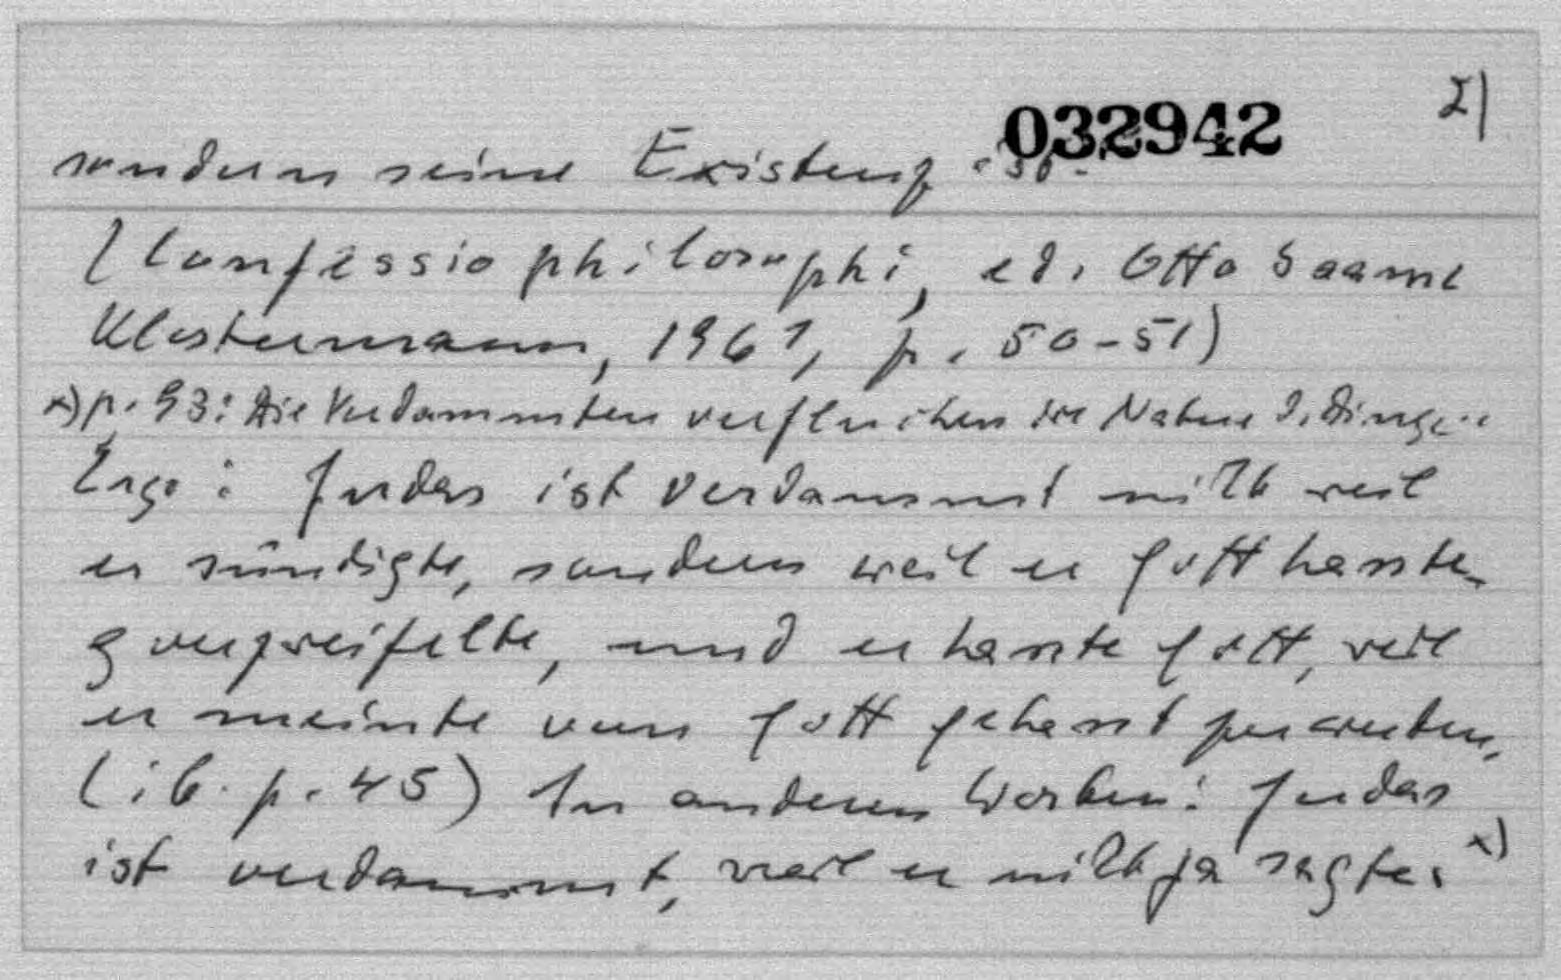 032942
2)
sondern seine Existenz ist.
(Confessio philosophi, ed. Otto Saame
Klostermann, 1967, p. 50-51)
x) p. 93: Die Verdammten verfluchen die Natur d. Dinge..
Ergo: Judas ist verdammt nicht weil
er sündigte, sondern weil er Gott hasste
verzweifelte, und er hasste Gott, weil
er meinte von Gott gehasst zu werden,
(ib. p. 45) In anderen Worten: Judas
ist verdammt, weil er nicht ja sagte. x)